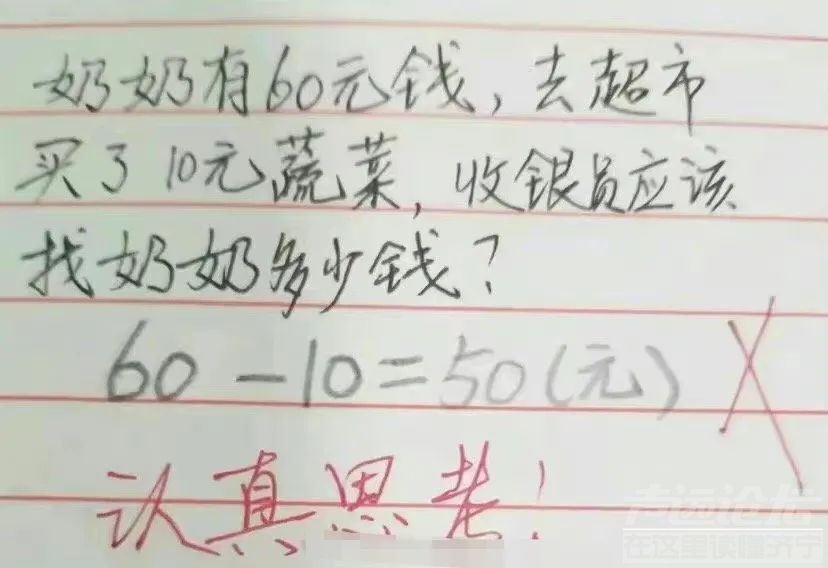 奶奶有60元钱，去超市
买了10元蔬菜，收银员应该
找奶奶多少钱？
60-10=50(元)
认真思考！
在这里读懂济宁